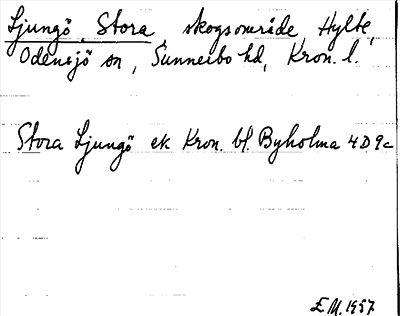 Ljungö, Stora, skogsområde, Hylte,
Odensjö sn, Sunnerbo hd, Kron. l.
Stora Ljungö ek Kron. bl. Byholma 4D9c
E.M. 1957